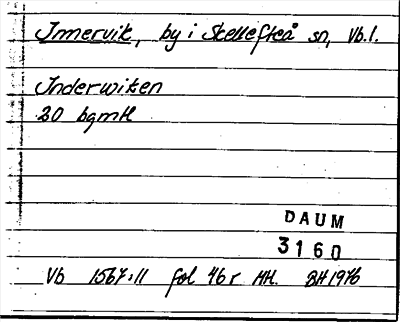 Innervik, by i Skellefteå sn, Vb.l.
Inderwiken
20 bgmtl
DAUM
3160
Vb 1567:11 fol 46r HH. BH 1976